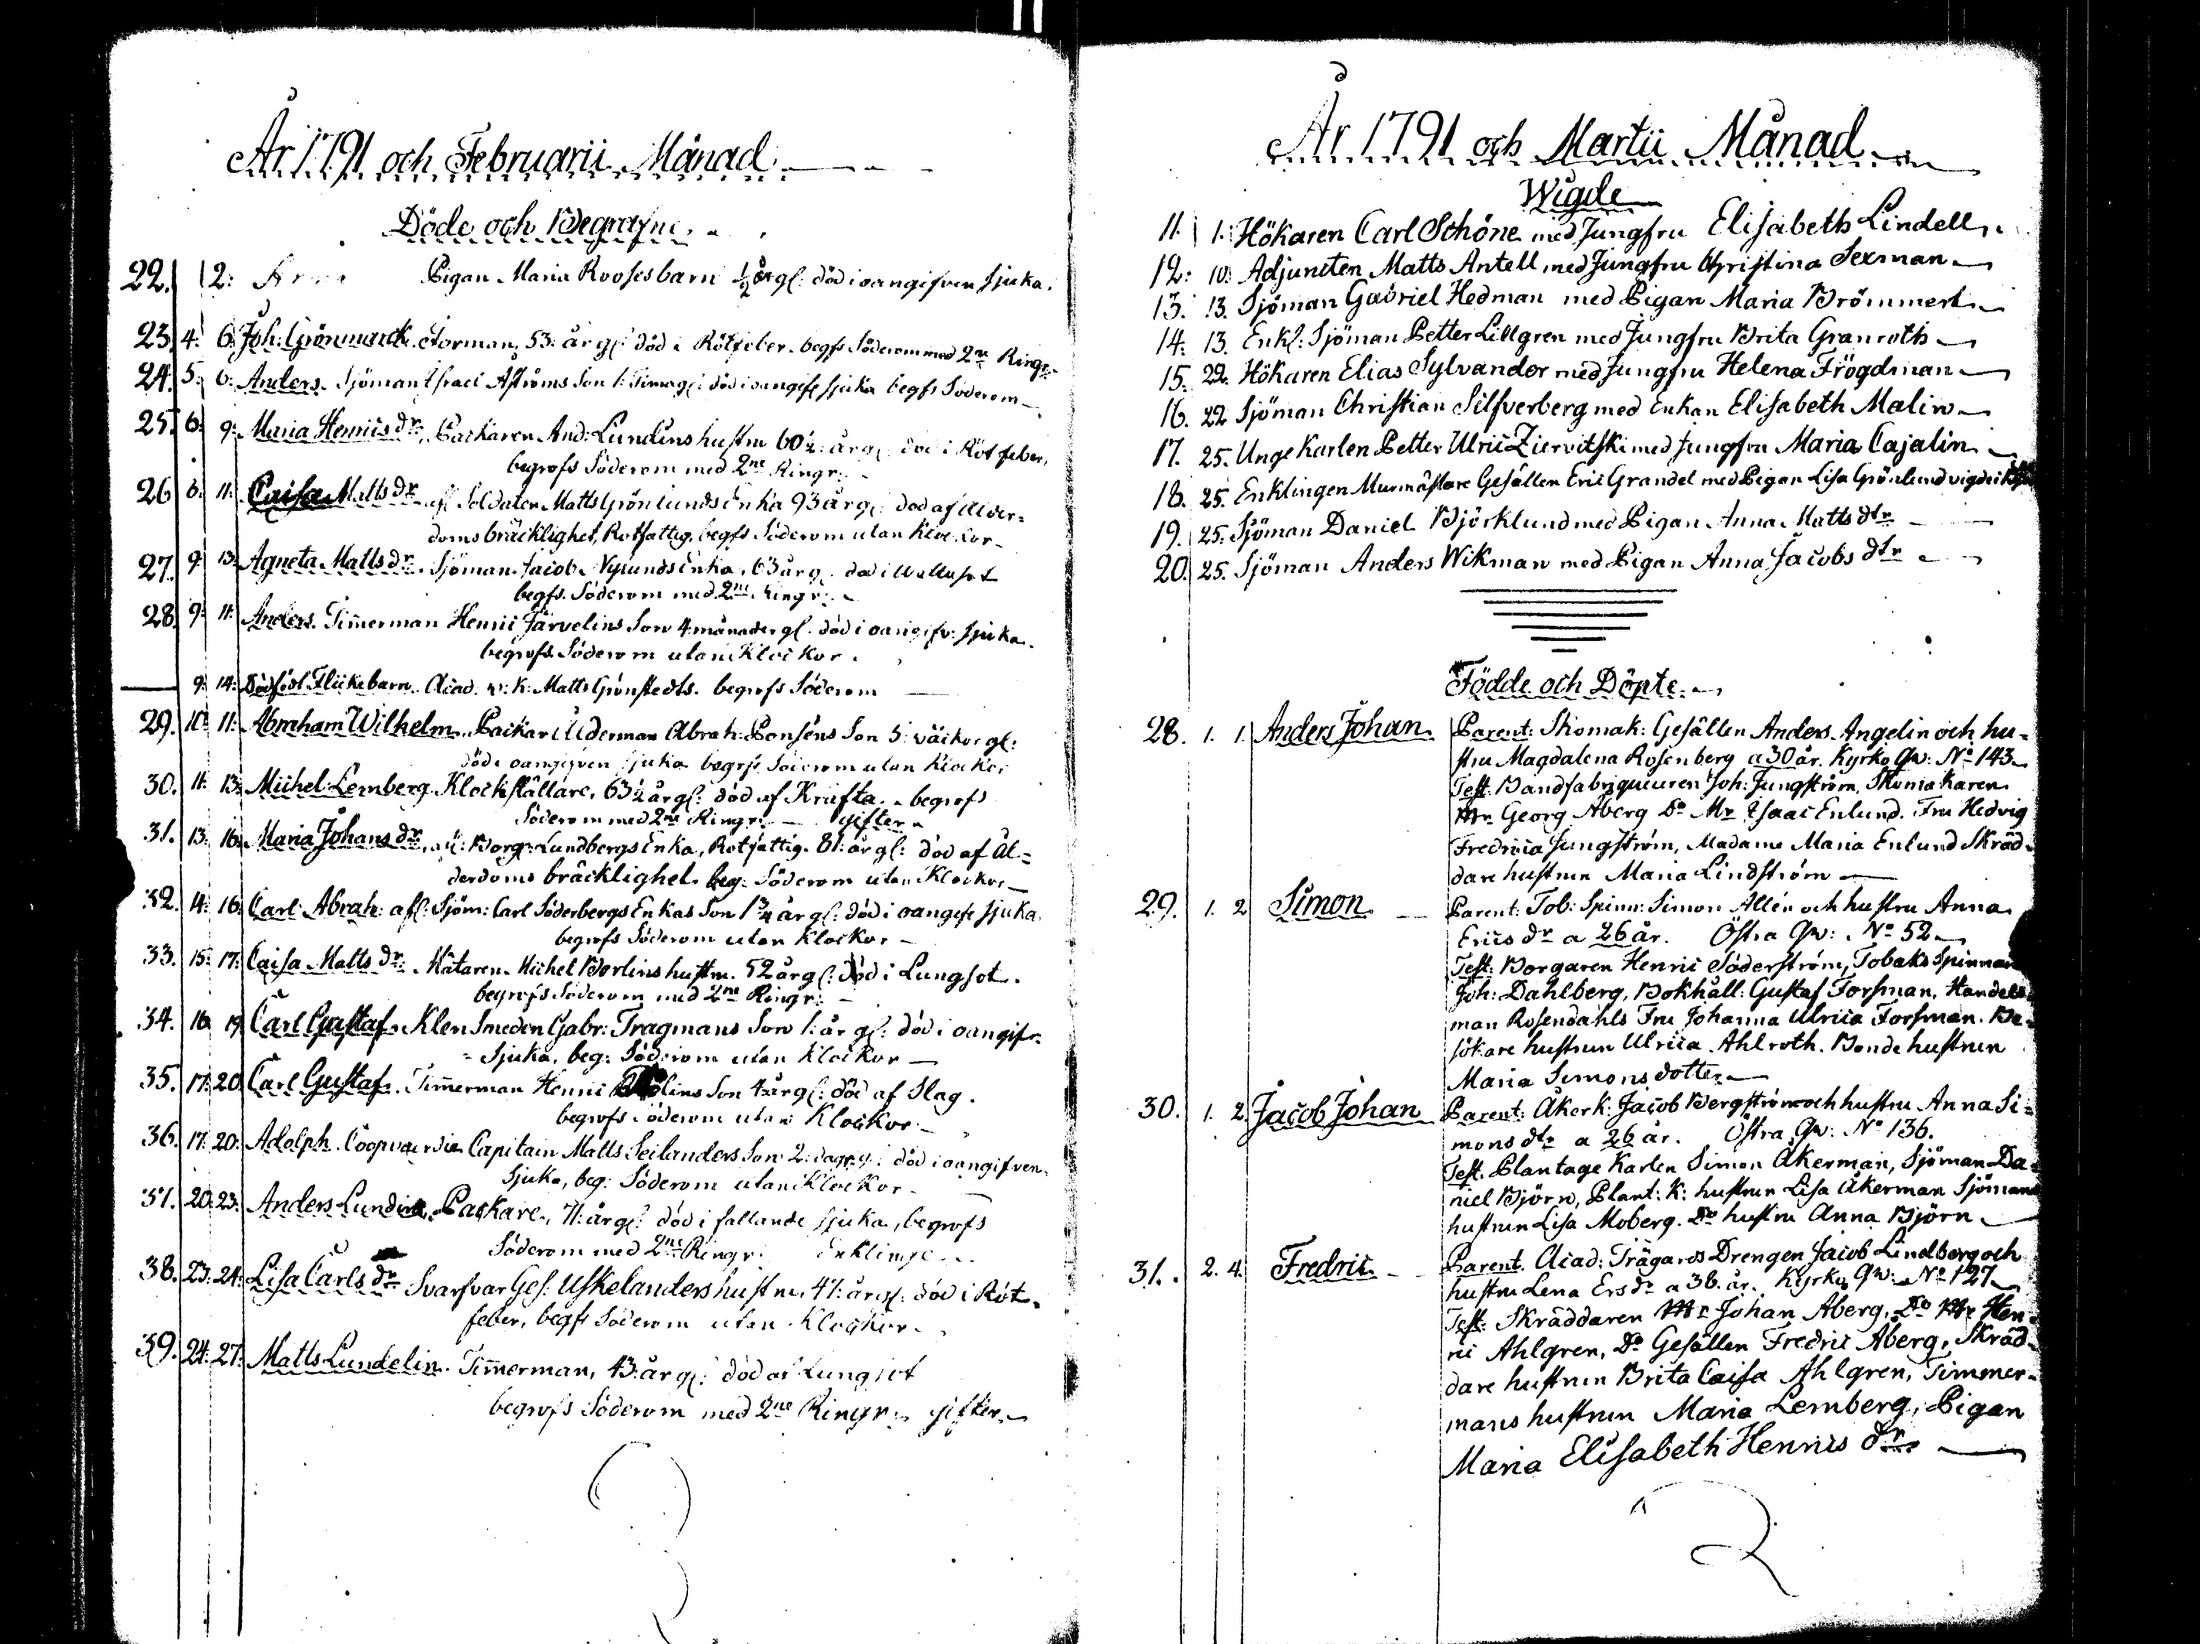 År 1791 och Februarii Månad
Döde och Begrafne
22. 2: Pigan Maria Rooses barn 1/2 år gl: död i oangifven sjuka.
23. 4. 6. Joh: Grönmarck. Förman, 53: år gl: död i Rötfeber. begfs Söderom med 2ne Ringr:
24. 5. 6: Anders. Sjöman Israel Aströms Son 1: Timagl: död i oangife sjuka begfs Söderom
25. 6. 9: Maria Henricsdr. Packaren And: Lundins hustru 60 1/2: år gl: död i Rötfeber,
begrofs Söderom med 2ne Ringr:
26. 8. 11: Caisa Mattsdr. afl. Soldaten Matts Grönlunds Enka 93 år gl: död af ålder-
doms bräcklighet, Rotfattig, begfs Söderom utan Klockor
27. 9. 13: Agneta Mattsdr. Sjöman Jacob Nylunds Enka, 63 år gl: död i Vattusot
begfs. Söderom med 2ne Ringr:
28. 9: 11: Anders. Timmerman Henric Järvelins Son 4 månader gl: död i oangifv: sjuka.
begrofs Söderom utan Klockor.
9: 14: Dödfödt Flickebarn. Acad. v: k: Matts Grönstedts. begrofs Söderom
29. 10. 11: Abraham Wilhelm. Packar Ålderman Abrah: Ponséns Son 5: väckor gl:
död i oangifven sjuka begrfs Söderom utan Klockor
30. 11. 13: Michel Lemberg. Klockställare, 63 1/2 år gl: död af Kräfta. begrofs
Söderom med 2ne Ringr: gifter
31. 13. 16: Maria Johansdr. afl: Borg: Lundbergs Enka, Rotfattig. 81: år gl: död af Ål-
derdoms bräcklighet. beg: Söderom utan Klockor
32. 14: 16: Carl Abrah: afl: Sjöm: Carl Söderbergs Enkas Son 1 3/4 år gl: död i oangife sjuka.
begrofs Söderom utan Klockor
33. 15: 17: Caisa Mattsdr. Mätaren Michel Berlins hustru. 52 år gl: död i Lungsot.
begrofs Söderom med 2ne Ringr:
34. 16. 19. Carl Gustaf. Klensmeden Gabr: Tragmans Son 1: år gl: död i oangifv.
Sjuka, beg: Söderom utan Klockor
35. 17: 20. Carl Gustaf. Timmerman Henric Son 4 år gl: död af Slag.
begrofs Söderom utan Klockor
36. 17: 20: Adolph. Coopvardie Capitain Matts Seilanders Son 2: dagr gl: död i oangifven
Sjuka, beg: Söderom utan Klockor
37. 20: 23: Anders Lundin. Packare, 71: år gl: död i fallande sjuka, begrofs
Söderom med 2ne Ringr: Enklinge
38. 23: 24: Lisa Carlsdr. Svarfvar Ges: Uskelanders hustru 47: år gl: död i Röt-
feber, begfs Söderom utan Klockor
39. 24: 27: Matts Lundelin. Timmerman, 43: år gl: död af Lungsot
begrofs Söderom med 2ne Ringr: gifter
År 1791 och Martii Månad
Wigde
11. 1. Hökaren Carl Schöne med Jungfru Elisabeth Lindell
12: 10: Adjuncten Matts Antell med Jungfru Christina Sexman
13. 13. Sjöman Gabriel Hedman med Pigan Maria Brömmert
14: 13. Enkl: Sjöman Petter Lillgren med Jungfru Brita Granroth
15. 22. Hökaren Elias Sylvander med Jungfru Helena Frögdman
16. 22. Sjöman Christian Silfverberg med Enkan Elisabeth Malin
17. 25. Unge Karlen Petter Ulric Ziervitski med Jungfru Maria Cajalin
18. 25. Enklingen Murmästare Gesällen Eric Grandel med Pigan Lisa Grönlund vigde i
19. 25: Sjöman Daniel Björklund med Pigan Anna Matts dtr
20. 25. Sjöman Anders Wikman med Pigan Anna Jacobs dtr
Födde och Döpte.
28. 1. 1. Anders Johan Parent: Skomak: Gesällen Anders Angelin och hu-
stru Magdalena Rosenberg a 30 år. Kyrko Qw: No 143
Test. Bandfabriqueuren Joh: Jungström, Skomakaren
Mr. Georg Åberg Do Mr Isaac Enlund. Fru Hedvig
Fredrica Jungström, Madame Maria Enlund Skräd-
dare hustrun Maria Lindström
29. 1. 2 Simon Parent: Tob: Spinn: Simon Allén och hustru Anna
Erics dr a 26 år. Östra Qw: No 52
Test: Borgaren Henric Söderström, Tobaks Spinnaren
Joh: Dahlberg, Bokhåll: Gustaf Forsman, Handels-
man Rosendahls Fru Johanna Ulrica Forsman. Be-
sökare hustrun Ulrica Ahlroth. Bonde hustrun
Maria Simons dotter
30. 1. 2 Jacob Johan Parent: Åkerk: Jacob Bergström och hustru Anna Si-
mons dtr a 26 år. Östra Qw: No 136.
Test. Plantage Karlen Simon Åkerman, Sjöman Da-
niel Björn, Plant: K: hustrun Lisa Åkerman Sjömans
hustrun Lisa Moberg. Do hustru Anna Björn
31. 2. 4. Fredric Parent. Acad: Trägårds Drengen Jacob Lindberg och
hustru Lena Ersdr a 38. år. Kyrko Qw: No 127
Test: Skräddaren Mr Johan Åberg, Do Mr Hen-
ric Ahlgren, Do Gesällen Fredric Åberg, Skräd-
dare hustrun Brita Caisa Ahlgren, Timmer-
mans hustrun Maria Lemberg, Pigan
Maria Elisabeth Henrics dr